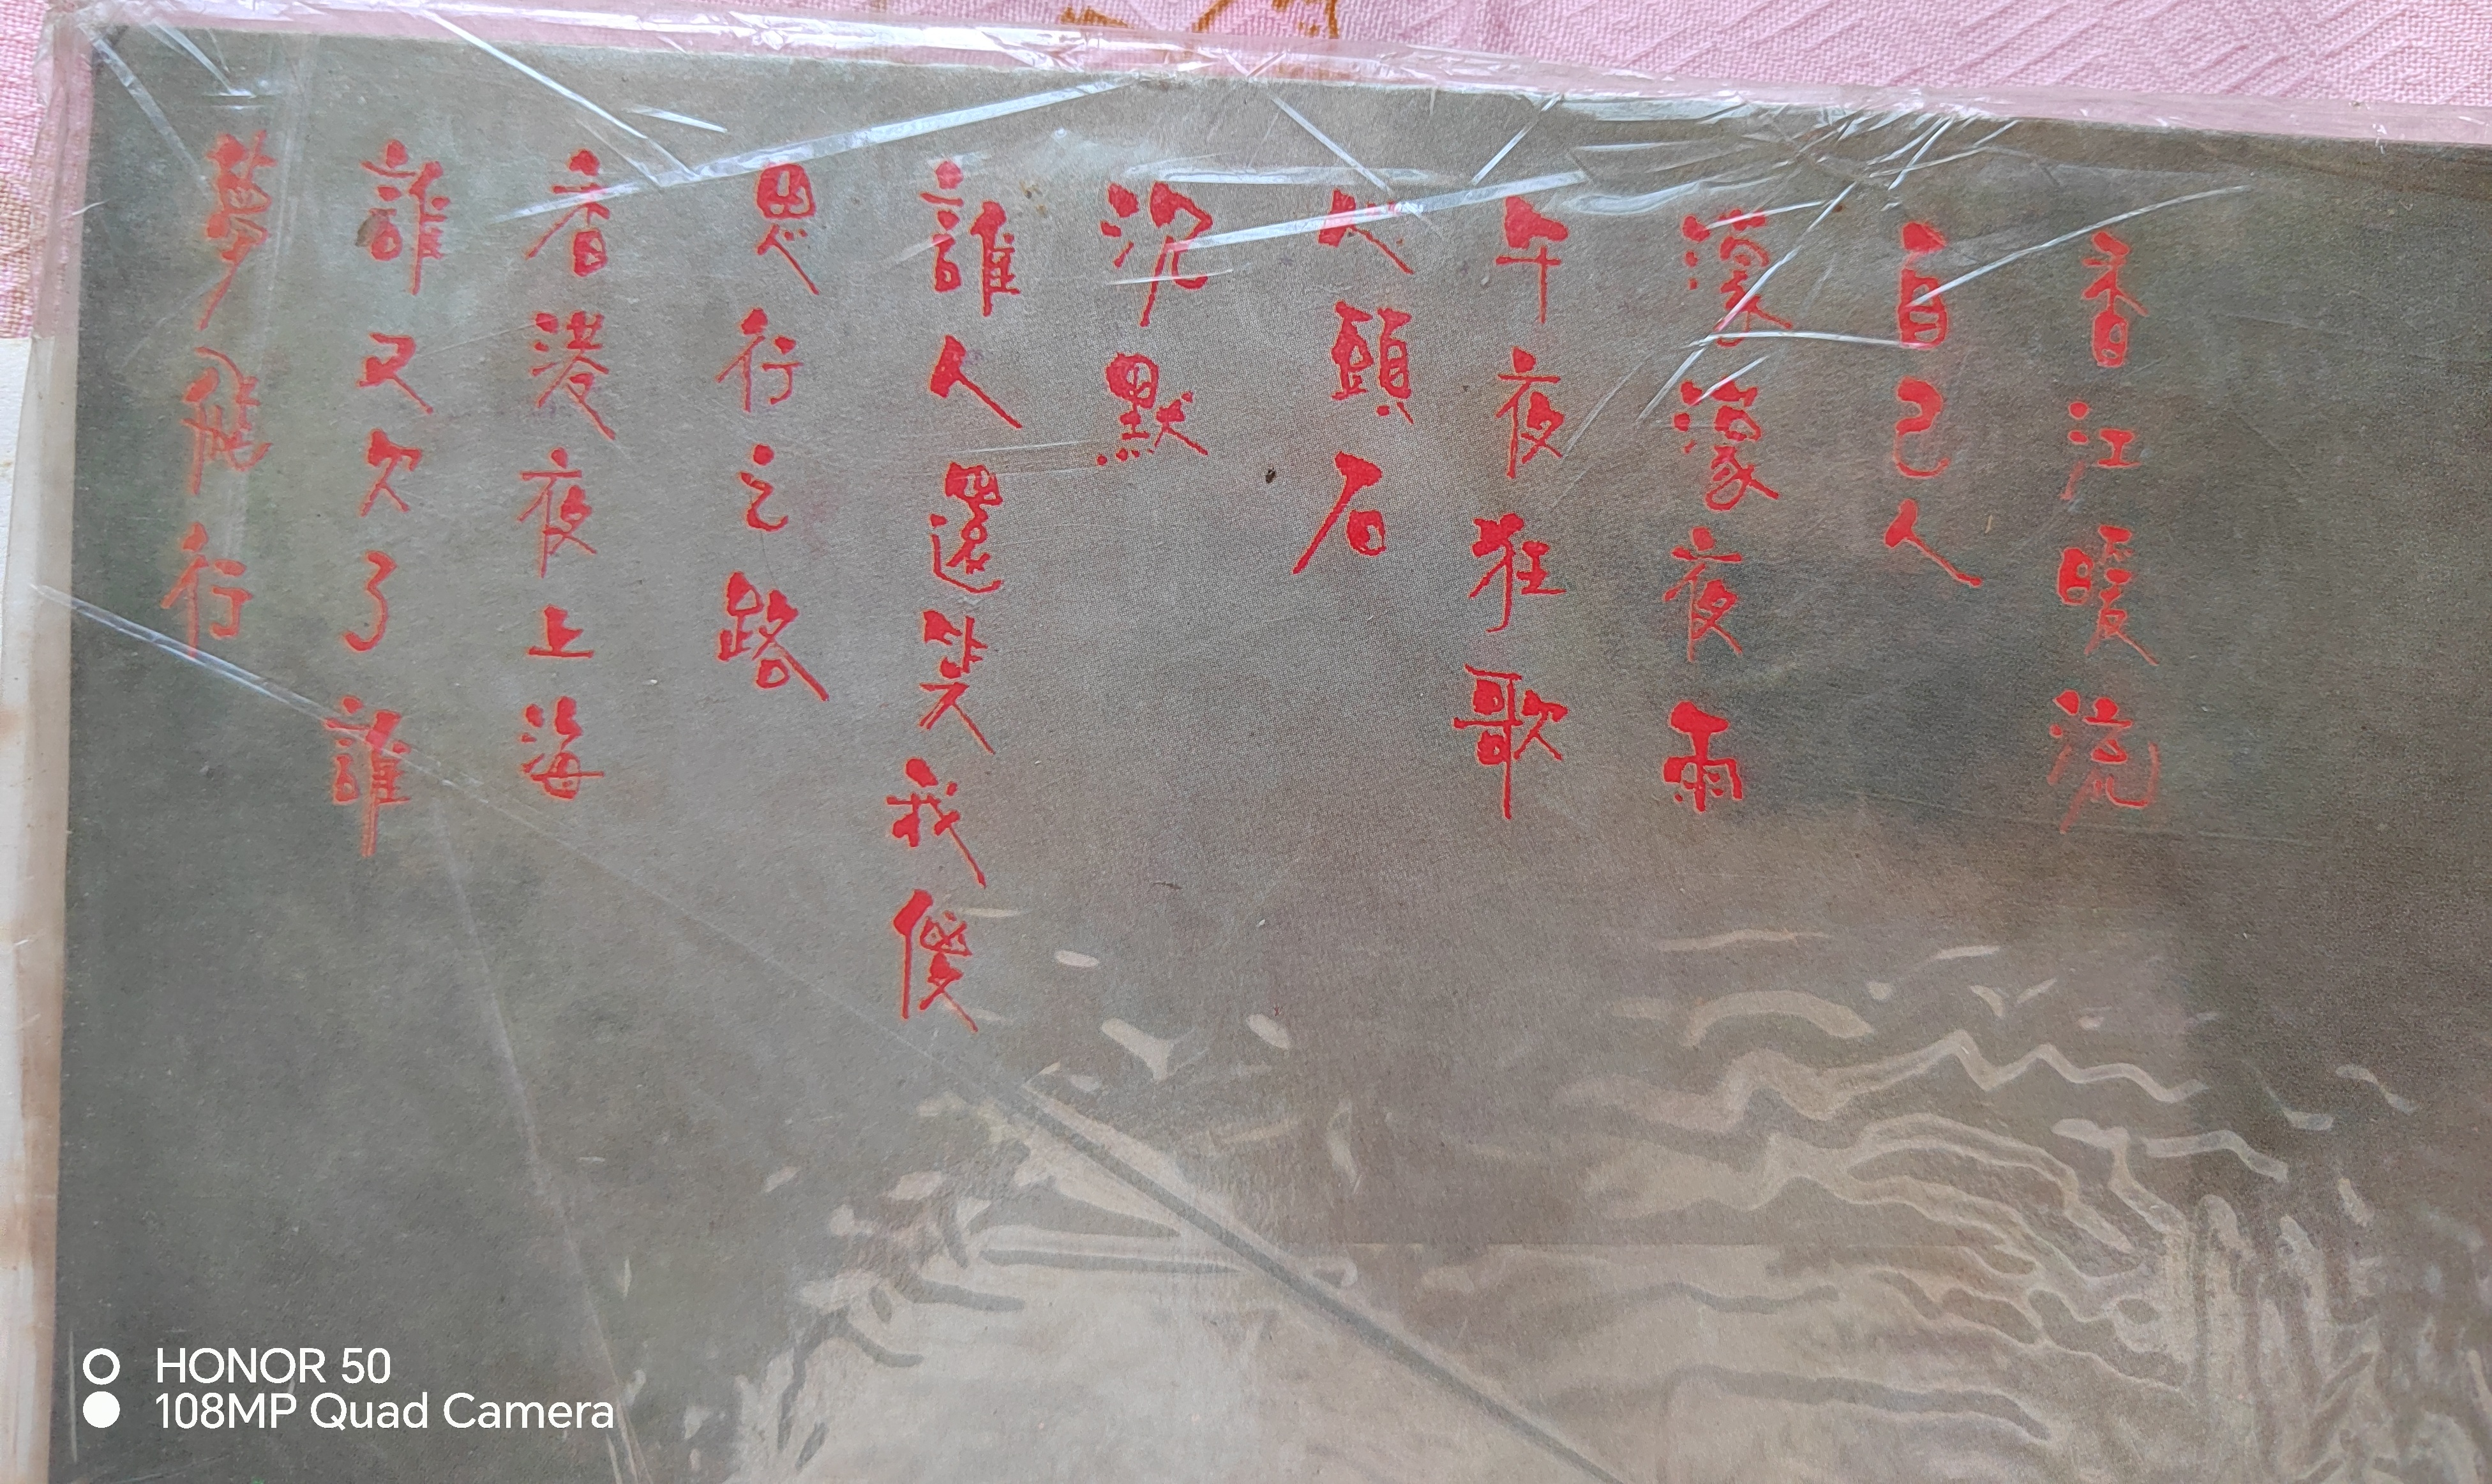 香江暖流
自己人
深濛夜雨
午夜狂歌
人頭石
沉默
誰人還笑我傻
思行之路
香港夜上海
誰又欠了誰
夢飛行
HONOR 50
108MP Quad Camera